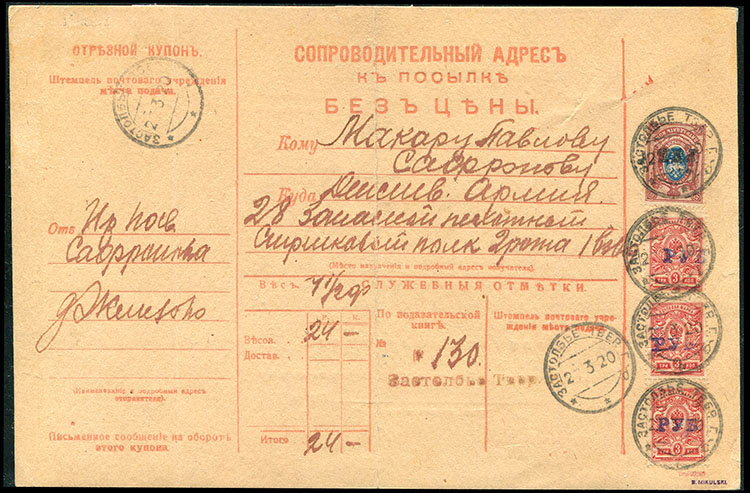 ОТРѢЗНОЙ КУПОНЪ.
Штемпель почтоваго учрежденія
мѣста подачи.
ЗАСТОЛБЬЕ
2 3 20
Отъ
Сафронова
(Наименованіе и подробный адресъ
отправителя).
Письменное сообщеніе на оборотѣ
этого купона.
СОПРОВОДИТЕЛЬНЫЙ АДРЕСЪ
КЪ ПОСЫЛКѢ
БЕЗЪ ЦѢНЫ.
Кому Макару Павлову
Сафронову
Куда Действ. Армия.
28 Запасной пехотный
полк 2 рота 1
(Мѣсто назначенія и подробный адресъ получателя).
Вѣсъ
СЛУЖЕБНЫЯ ОТМѢТКИ.
Р. К.
Вѣсов. 24 —
Достав.
Итого 24 —
По подавательской
книгѣ.
№ 130.
Застолбье Твер.
Штемпель почтоваго учреж-
денія мѣста подачи.
ЗАСТОЛБЬЕ ТВЕР. Г.
2 3 20
ЗАСТОЛБЬЕ ТВЕР. Г.
ЗАСТОЛБЬЕ
РУБ
3
РУБ
3
ЗАСТОЛБЬЕ ТВЕР. Г.
РУБ
ТРИ 3 КОП
B. MIKULSKI.